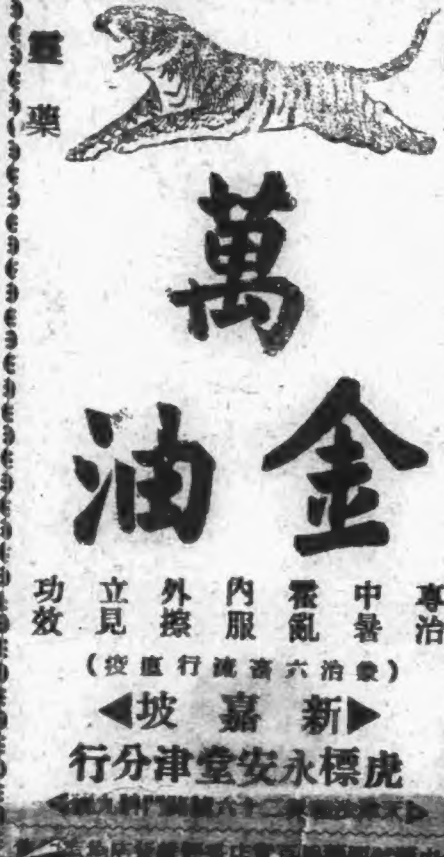 靈藥
萬
金油
專治
中暑
霍亂
內服
外擦
立見
功效
(兼治六畜流行疫)
新嘉坡
虎標永安堂津分行